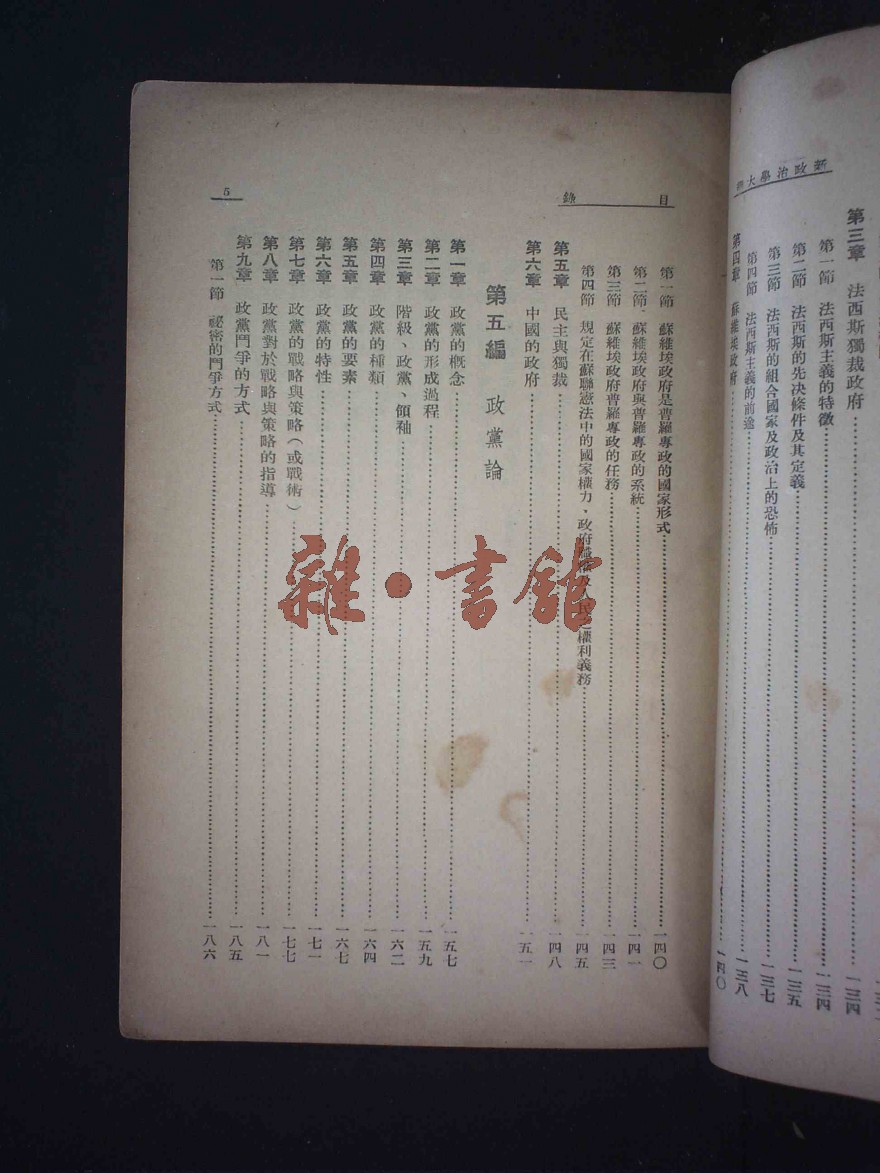 新政治學大
第三章　法西斯獨裁政府……一三四
第一節　法西斯主義的特徵……一三四
第二節　法西斯的先決條件及其定義……一三五
第三節　法西斯的組合國家及政治上的恐怖……一三七
第四節　法西斯主義的前途……一三八
第四章　蘇維埃政府……一四〇
目錄
第一節　蘇維埃政府是普羅專政的國家形式……一四〇
第二節　蘇維埃政府與普羅專政的系統……一四一
第三節　蘇維埃政府普羅專政的任務……一四三
第四節　規定在蘇聯憲法中的國家權力、政府職權及人民之權利義務……一四五
第五章　民主與獨裁……一四八
第六章　中國的政府……一五一
第五編　政黨論
第一章　政黨的概念……一五七
第二章　政黨的形成過程……一五九
第三章　階級、政黨、領袖……一六二
第四章　政黨的種類……一六四
第五章　政黨的要素……一六七
第六章　政黨的特性……一七一
第七章　政黨的戰略與策略（或戰術）……一七七
第八章　政黨對於戰略與策略的指導……一八一
第九章　政黨鬥爭的方式……一八五
第一節　祕密的鬥爭方式……一八六
5
雜·書館